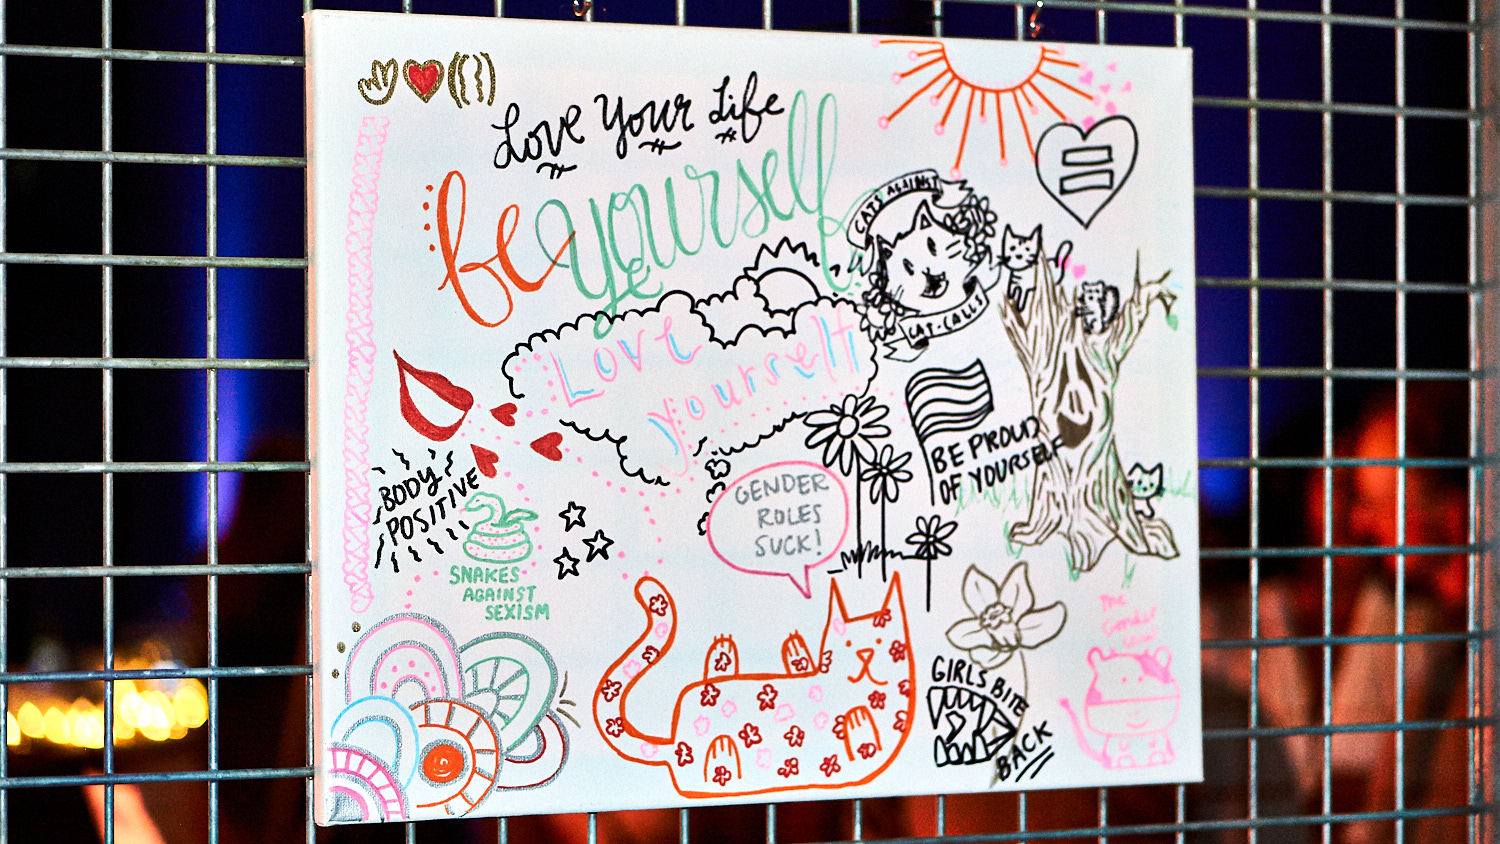 Love Your Life
be yourself
CATS AGAINST
CAT-CALLS
Love
yourself
BE PROUD
OF YOURSELF
BODY
POSITIVE
GENDER
ROLES
SUCK!
SNAKES
AGAINST
SEXISM
GIRLS BITE
BACK